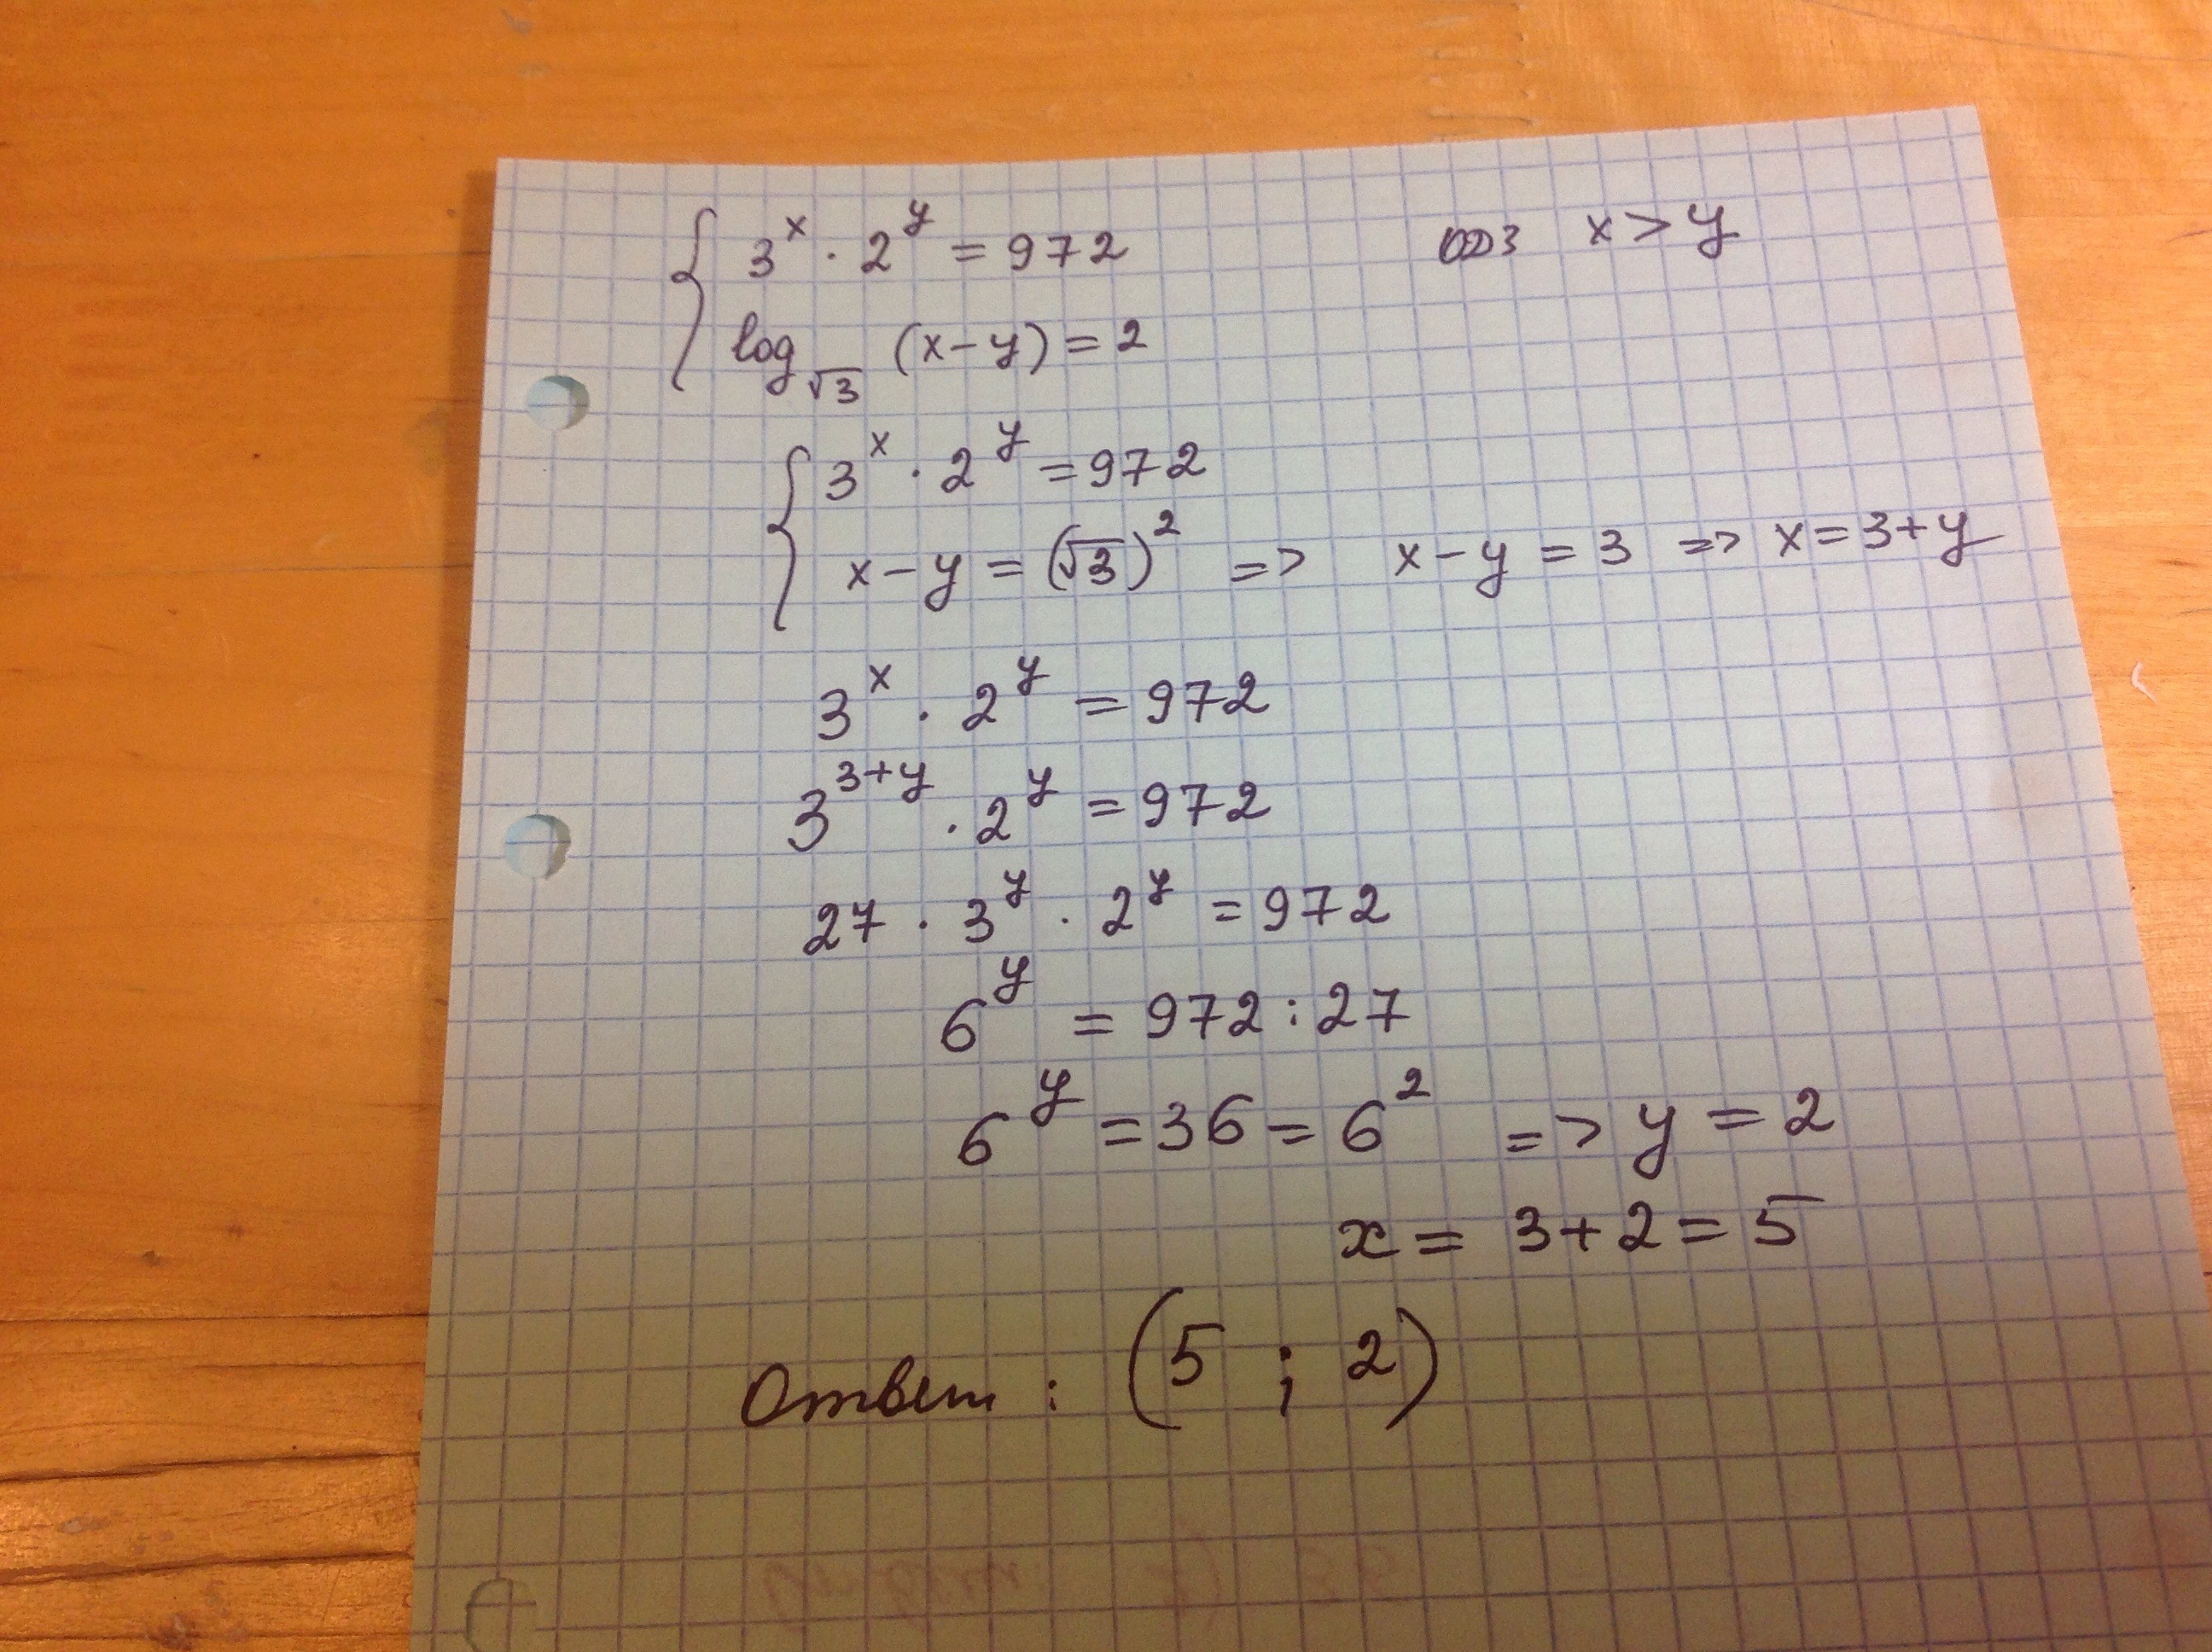 { 3^x · 2^y = 972 ОДЗ x > y
log_√3 (x − y) = 2
{ 3^x · 2^y = 972
x − y = (√3)^2 => x − y = 3 => x = 3 + y
3^x · 2^y = 972
3^(3+y) · 2^y = 972
27 · 3^y · 2^y = 972
6^y = 972 : 27
6^y = 36 = 6^2 => y = 2
x = 3 + 2 = 5
Ответ : (5 ; 2)